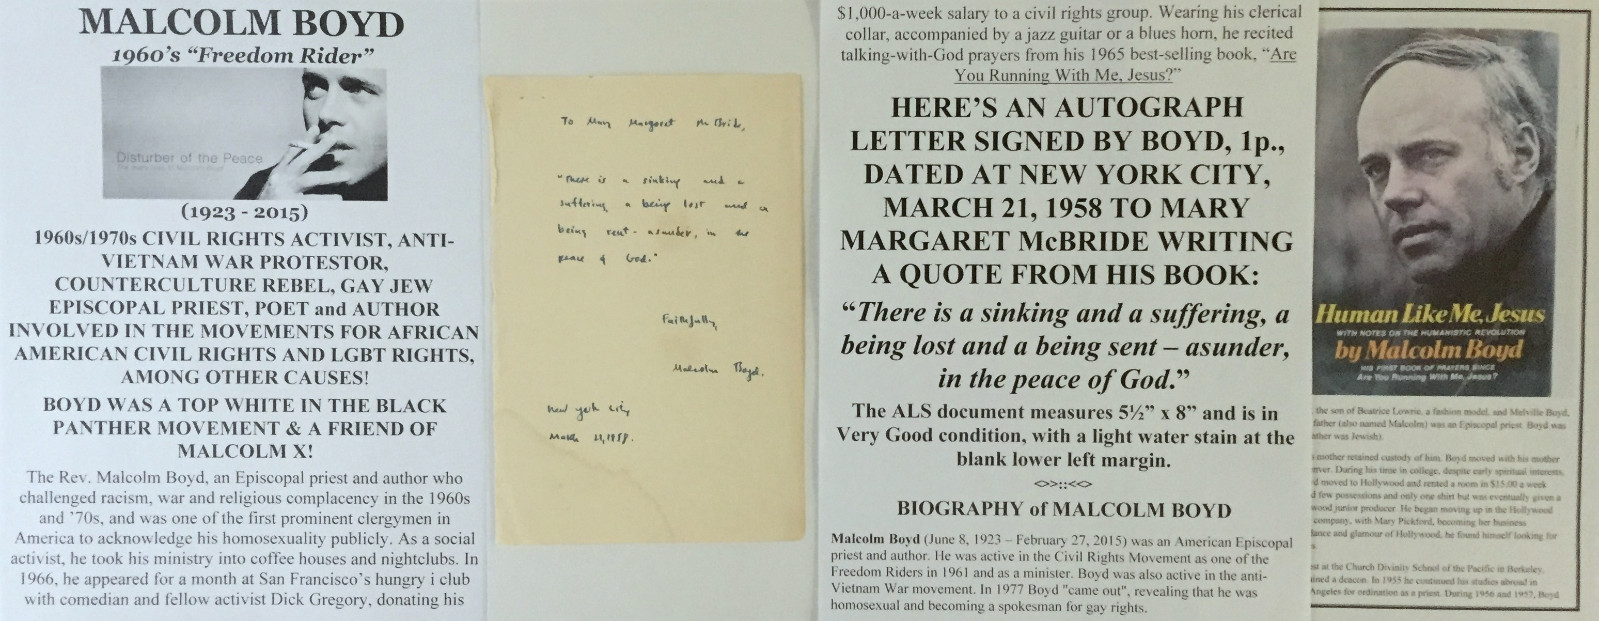 MALCOLM BOYD
1960's “Freedom Rider”
Disturber of the Peace
(1923 - 2015)
1960s/1970s CIVIL RIGHTS ACTIVIST, ANTI-
VIETNAM WAR PROTESTOR,
COUNTERCULTURE REBEL, GAY JEW
EPISCOPAL PRIEST, POET and AUTHOR
INVOLVED IN THE MOVEMENTS FOR AFRICAN
AMERICAN CIVIL RIGHTS AND LGBT RIGHTS,
AMONG OTHER CAUSES!
BOYD WAS A TOP WHITE IN THE BLACK
PANTHER MOVEMENT & A FRIEND OF
MALCOLM X!
The Rev. Malcolm Boyd, an Episcopal priest and author who
challenged racism, war and religious complacency in the 1960s
and '70s, and was one of the first prominent clergymen in
America to acknowledge his homosexuality publicly. As a social
activist, he took his ministry into coffee houses and nightclubs. In
1966, he appeared for a month at San Francisco's hungry i club
with comedian and fellow activist Dick Gregory, donating his
To Mary Margaret McBride,
“There is a sinking and a
suffering, a being lost and a
being rent - asunder, in the
peace of God.”
Faithfully,
Malcolm Boyd.
New York City
March 21, 1958.
$1,000-a-week salary to a civil rights group. Wearing his clerical
collar, accompanied by a jazz guitar or a blues horn, he recited
talking-with-God prayers from his 1965 best-selling book, “Are
You Running With Me, Jesus?”
HERE'S AN AUTOGRAPH
LETTER SIGNED BY BOYD, 1p.,
DATED AT NEW YORK CITY,
MARCH 21, 1958 TO MARY
MARGARET McBRIDE WRITING
A QUOTE FROM HIS BOOK:
“There is a sinking and a suffering, a
being lost and a being sent – asunder,
in the peace of God.”
The ALS document measures 5½” x 8” and is in
Very Good condition, with a light water stain at the
blank lower left margin.
<>>::<<>
BIOGRAPHY of MALCOLM BOYD
Malcolm Boyd (June 8, 1923 – February 27, 2015) was an American Episcopal
priest and author. He was active in the Civil Rights Movement as one of the
Freedom Riders in 1961 and as a minister. Boyd was also active in the anti-
Vietnam War movement. In 1977 Boyd "came out", revealing that he was
homosexual and becoming a spokesman for gay rights.
Human Like Me, Jesus
WITH NOTES ON THE HUMANISTIC REVOLUTION
by Malcolm Boyd
HIS FIRST BOOK OF PRAYERS SINCE
Are You Running With Me, Jesus?
the son of Beatrice Lowrie, a fashion model, and Melville Boyd,
father (also named Malcolm) was an Episcopal priest. Boyd was
was Jewish).
mother retained custody of him. Boyd moved with his mother
During his time in college, despite early spiritual interests,
moved to Hollywood and rented a room in $15.00 a week
few possessions and only one shirt but was eventually given a
junior producer. He began moving up in the Hollywood
company, with Mary Pickford, becoming her business
and glamour of Hollywood, he found himself looking for
at the Church Divinity School of the Pacific in Berkeley,
a deacon. In 1955 he continued his studies abroad in
Angeles for ordination as a priest. During 1956 and 1957, Boyd